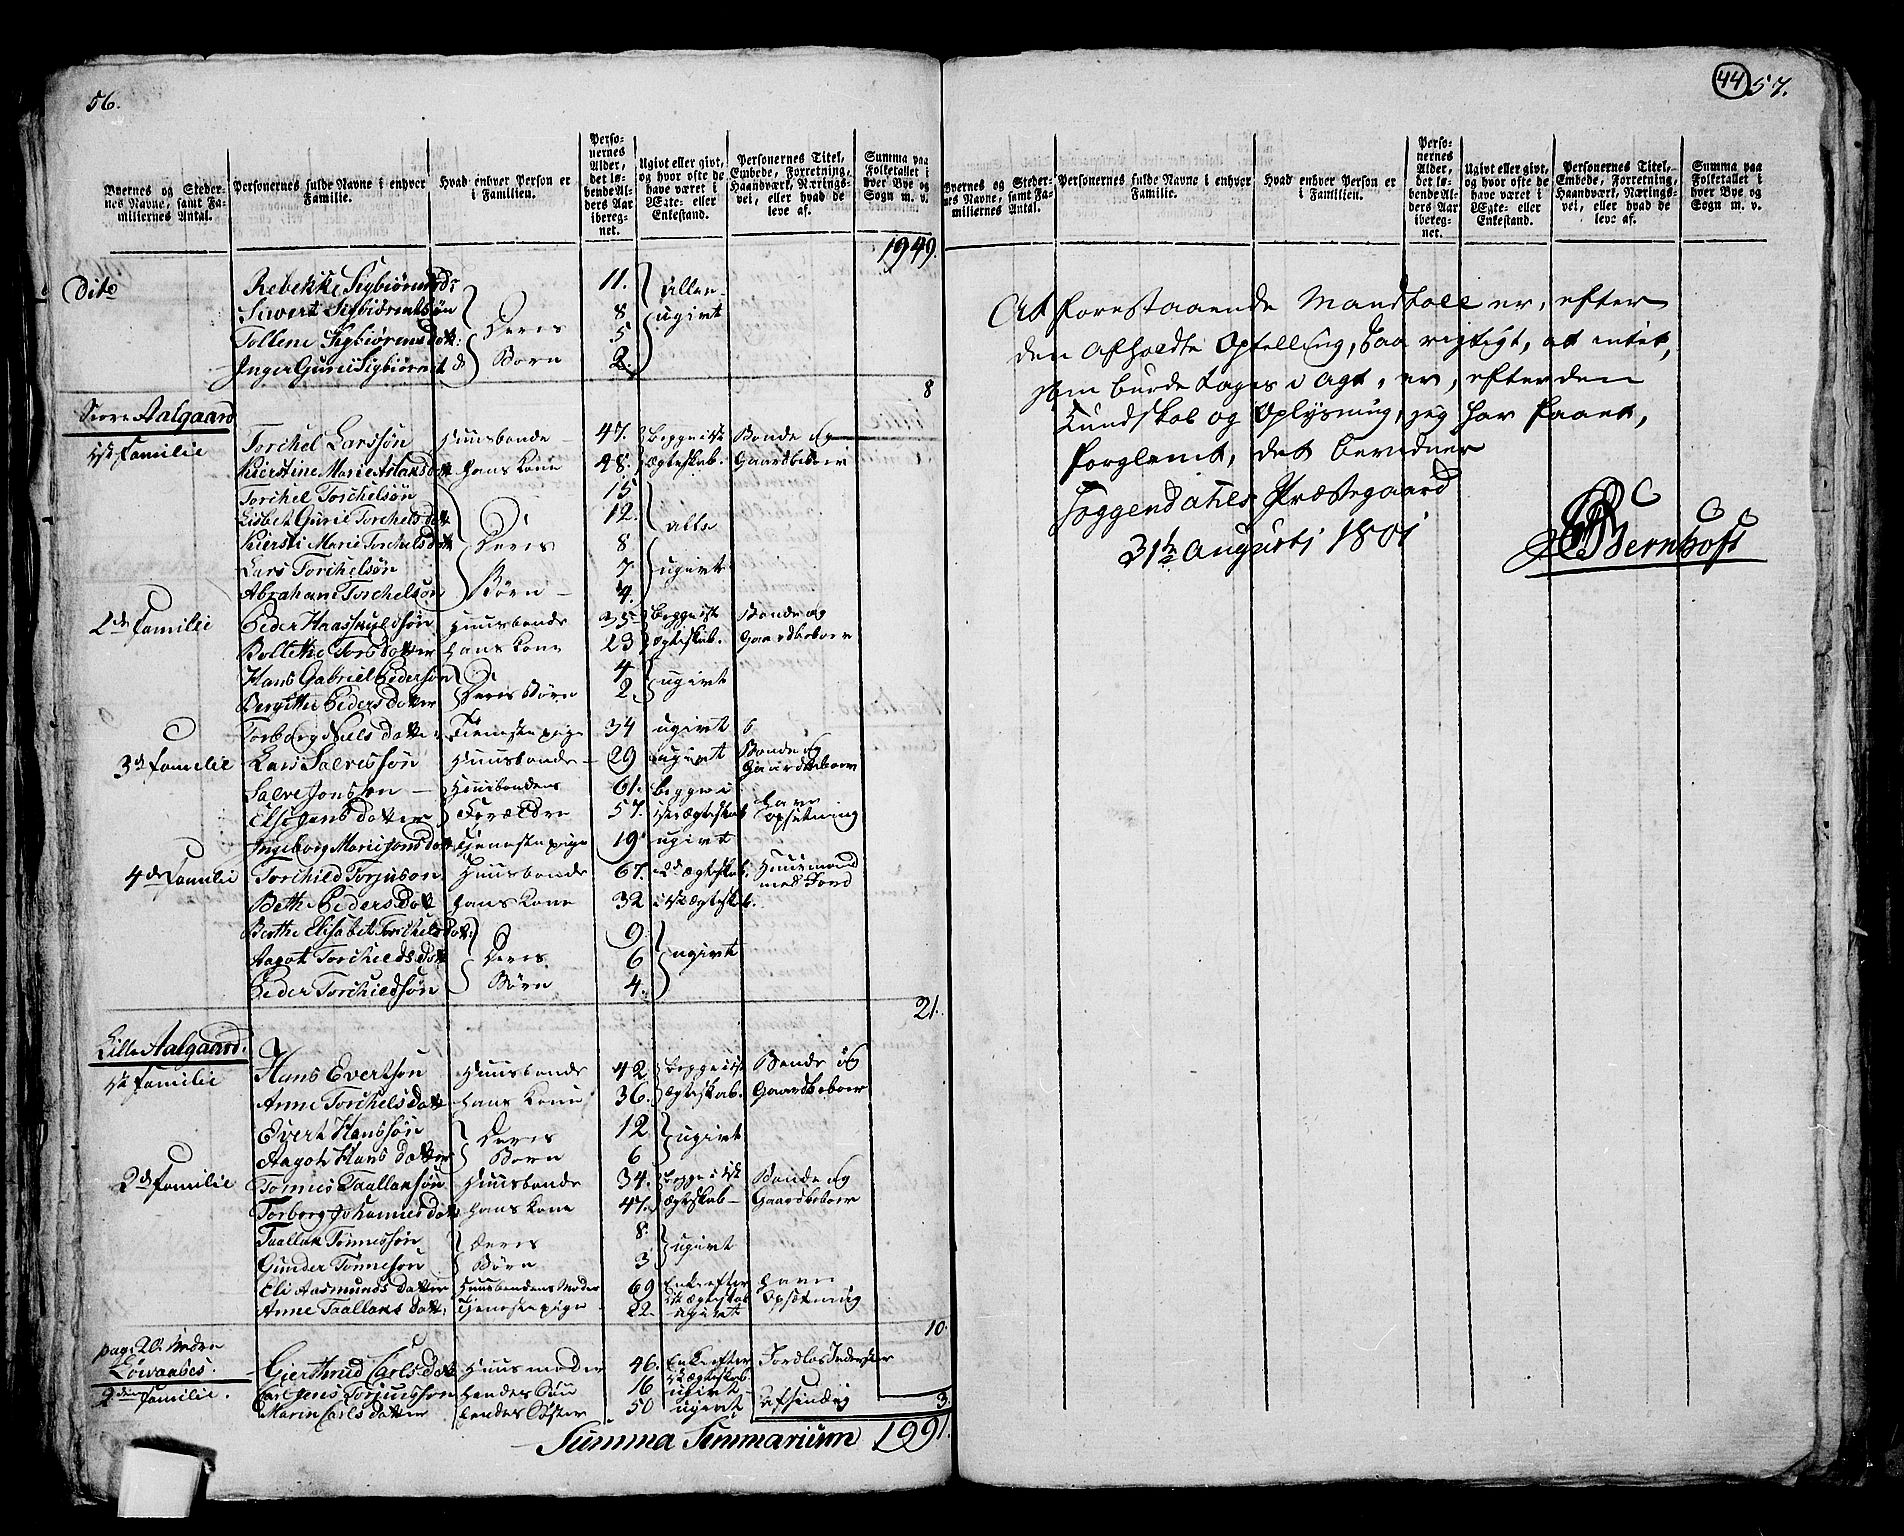 56.
Byernes og Stedernes Navne, samt Familiernes Antal.
Personernes fulde Navne i enhver Familie.
Hvad enhver Person er i Familien.
Personernes Alder, det løbende Alders Aar iberegnet.
Ugivt eller givt, og hvor ofte de have været i Ægte- eller Enkestand.
Personernes Titel, Embede, Forretning, Haandværk, Næringsvei, eller hvad de leve af.
Summa paa Folketallet i hver Bye og Sogn m. v.
1949.
Dito Rebekke Sigbiørensdr 11. alle
Siwert Sigbiørensøn Deres 8 ugivt
Tollene Sigbiørensdatt: Børn 5
Inger Gurie Sigbiørens d 2.
8
Store Aalgaard
1ste Familie Torchel Larssøn Huusbonde 47. Begge i 1ste Bonde og
Kierstine Marie Adams datt hans Kone 48. Ægteskab. Gaardbeboer
Torchel Torchelsøn 15
Lisbet Gurie Torchelsdatt 12. alle
Kiersti Marie Torchelsdatt Deres 8
Lars Torchelsøn 7 ugivte
Abraham Torchelsøn Børn 4.
2den Familie Peder Haaskyldsøn Huusbonde 25 Begge i 1ste Bonde og
Bollethe Torsdatter hans Kone 23 Ægteskab. Gaardbeboer
Hans Gabriel Pedersøn 4 ugivt
Bergithe Pedersdatter Deres Børn 2
Torborg Nielsdatter Tienestepige 34 ugivt
3de Familie Lars Salvessøn Huusbonde 29 ugivt Bonde og Gaardbeboer
Salve Jonssøn Huusbondens 61. Begge i
Else Jensdatter Forældre 57. 1ste Ægteskab have Opsetning
Ingeborg Marie Jonsdatt Tjenestepige 19 ugivt
4de Familie Torchild Torjuson Huusbonde 67. 2d Ægteskab. Huusmand med Jord
Bethe Pedersdatt hans Kone 32 i 1ste Ægteskab.
Berthe Elisabet Torchelsdatt: 9
Aagot Torchildsdatt Deres 6 ugivt
Peder Torchildsøn Børn 4.
21.
Lille Aalgaard.
1ste Familie Hans Evertsøn Huusbonde 42 Begge i 1ste Bonde og
Anne Torchelsdatt hans Kone 36. Ægteskab. Gaardbeboer
Evert Hanssøn Deres 12 ugivt
Aagot Hansdatter Børn 6
2de Familie Tønnes Taallaksøn Huusbonde 34. Begge i 1ste Bonde og
Torborg Johannesdatt hans Kone 47. Ægteskab Gaardbeboer
Taallak Tønnessøn Deres 8. ugivt
Gunder Tønnesøn Børn 3
Eli Aasmundsdatter Huusbondens Moder 69 Enke efter 1ste Ægteskab have
Anne Taallaksdatt: Tjenestepige 22. ugivt Opsetning
10.
pag: 20. Nedre
Løvaases. Gierthrud Carlsdatt Huusmoder 46. Enke efter 1ste Ægteskab
2den Familie. Carl Jens Torjussøn hendes Søn 16 ugivt
Maren Carlsdatter hendes Søster 50 ugivt
3.
Summa Summarium 1991.
44 57.
Byernes og Stedernes Navne, samt Familiernes Antal.
Personernes fulde Navne i enhver Familie.
Hvad enhver Person er i Familien.
Personernes Alder, det løbende Alders Aar iberegnet.
Ugivt eller givt, og hvor ofte de have været i Ægte- eller Enkestand.
Personernes Titel, Embede, Forretning, Haandværk, Næringsvei, eller hvad de leve af.
Summa paa Folketallet i hver Bye og Sogn m. v.
At forestaaende Mandtall er, efter
den afholdte Optelling, saa rigtigt, at intet,
som burde tages i agt, er, efter den
Kundskab og Oplysning, jeg har faaet,
forglemt, det bevidner
Toggendahls Præstegaard
31te Augusti 1801
Bernhoft